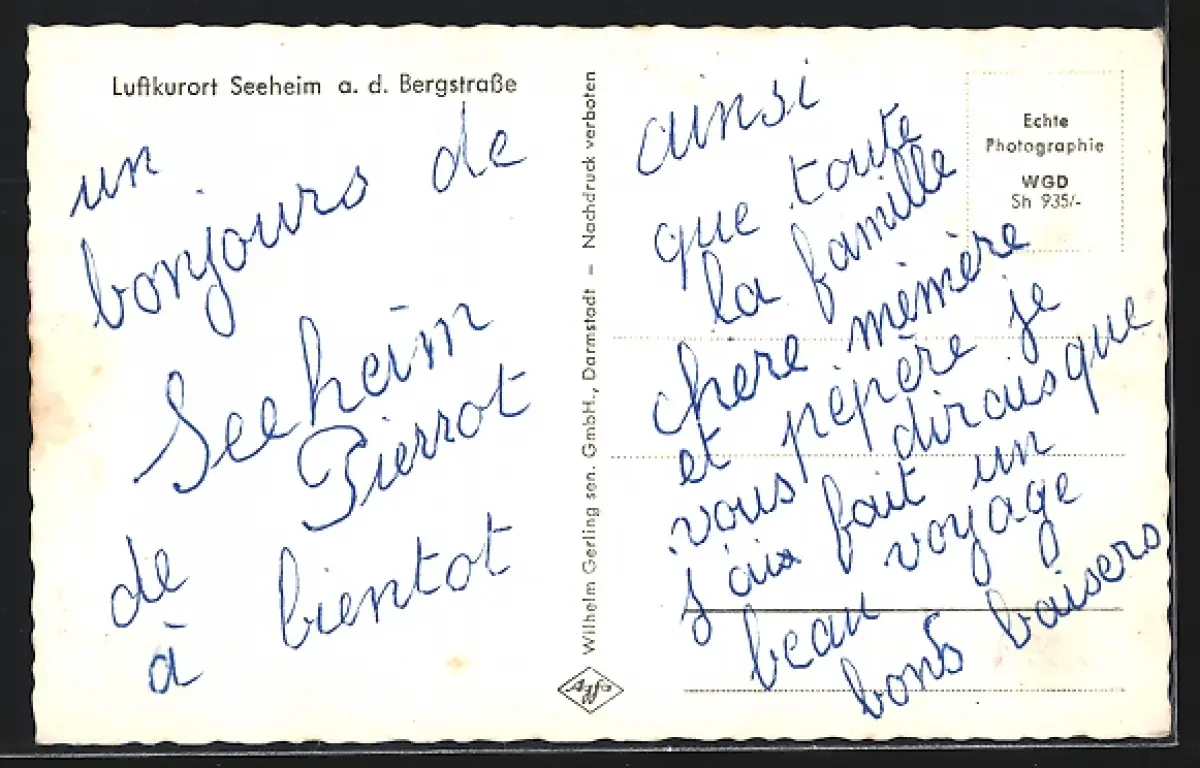 Luftkurort Seeheim a. d. Bergstraße
un
bonjours de
Seeheim
de Pierrot
à bientot
Wilhelm Gerling sen. GmbH., Darmstadt – Nachdruck verboten
Agfa
Echte
Photographie
WGD
Sh 935/-
ainsi
que toute
la famille
chere mémère
et pépère je
vous dirais que
j'aix fait un
beau voyage
bons baisers